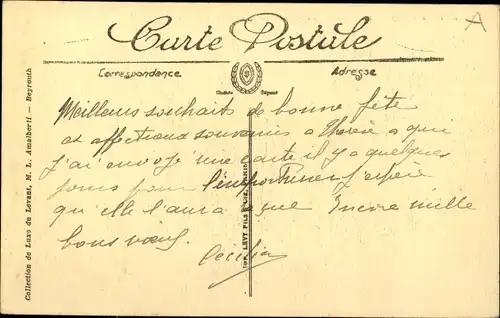 Carte Postale
Correspondance
Adresse
Modèle Déposé
Meilleurs souhaits de bonne fête
et affectueux souvenirs à Thérèse à qui
j'ai envoyé une carte il y a quelques
jours pour j'espère
qu'elle l'aura reçue Encore mille
bons vœux
Cécilia
Collection de Luxe du Levant, M. L. Amalberti — Beyrouth
IMP. LEVY FILS & CIE, PARIS
A